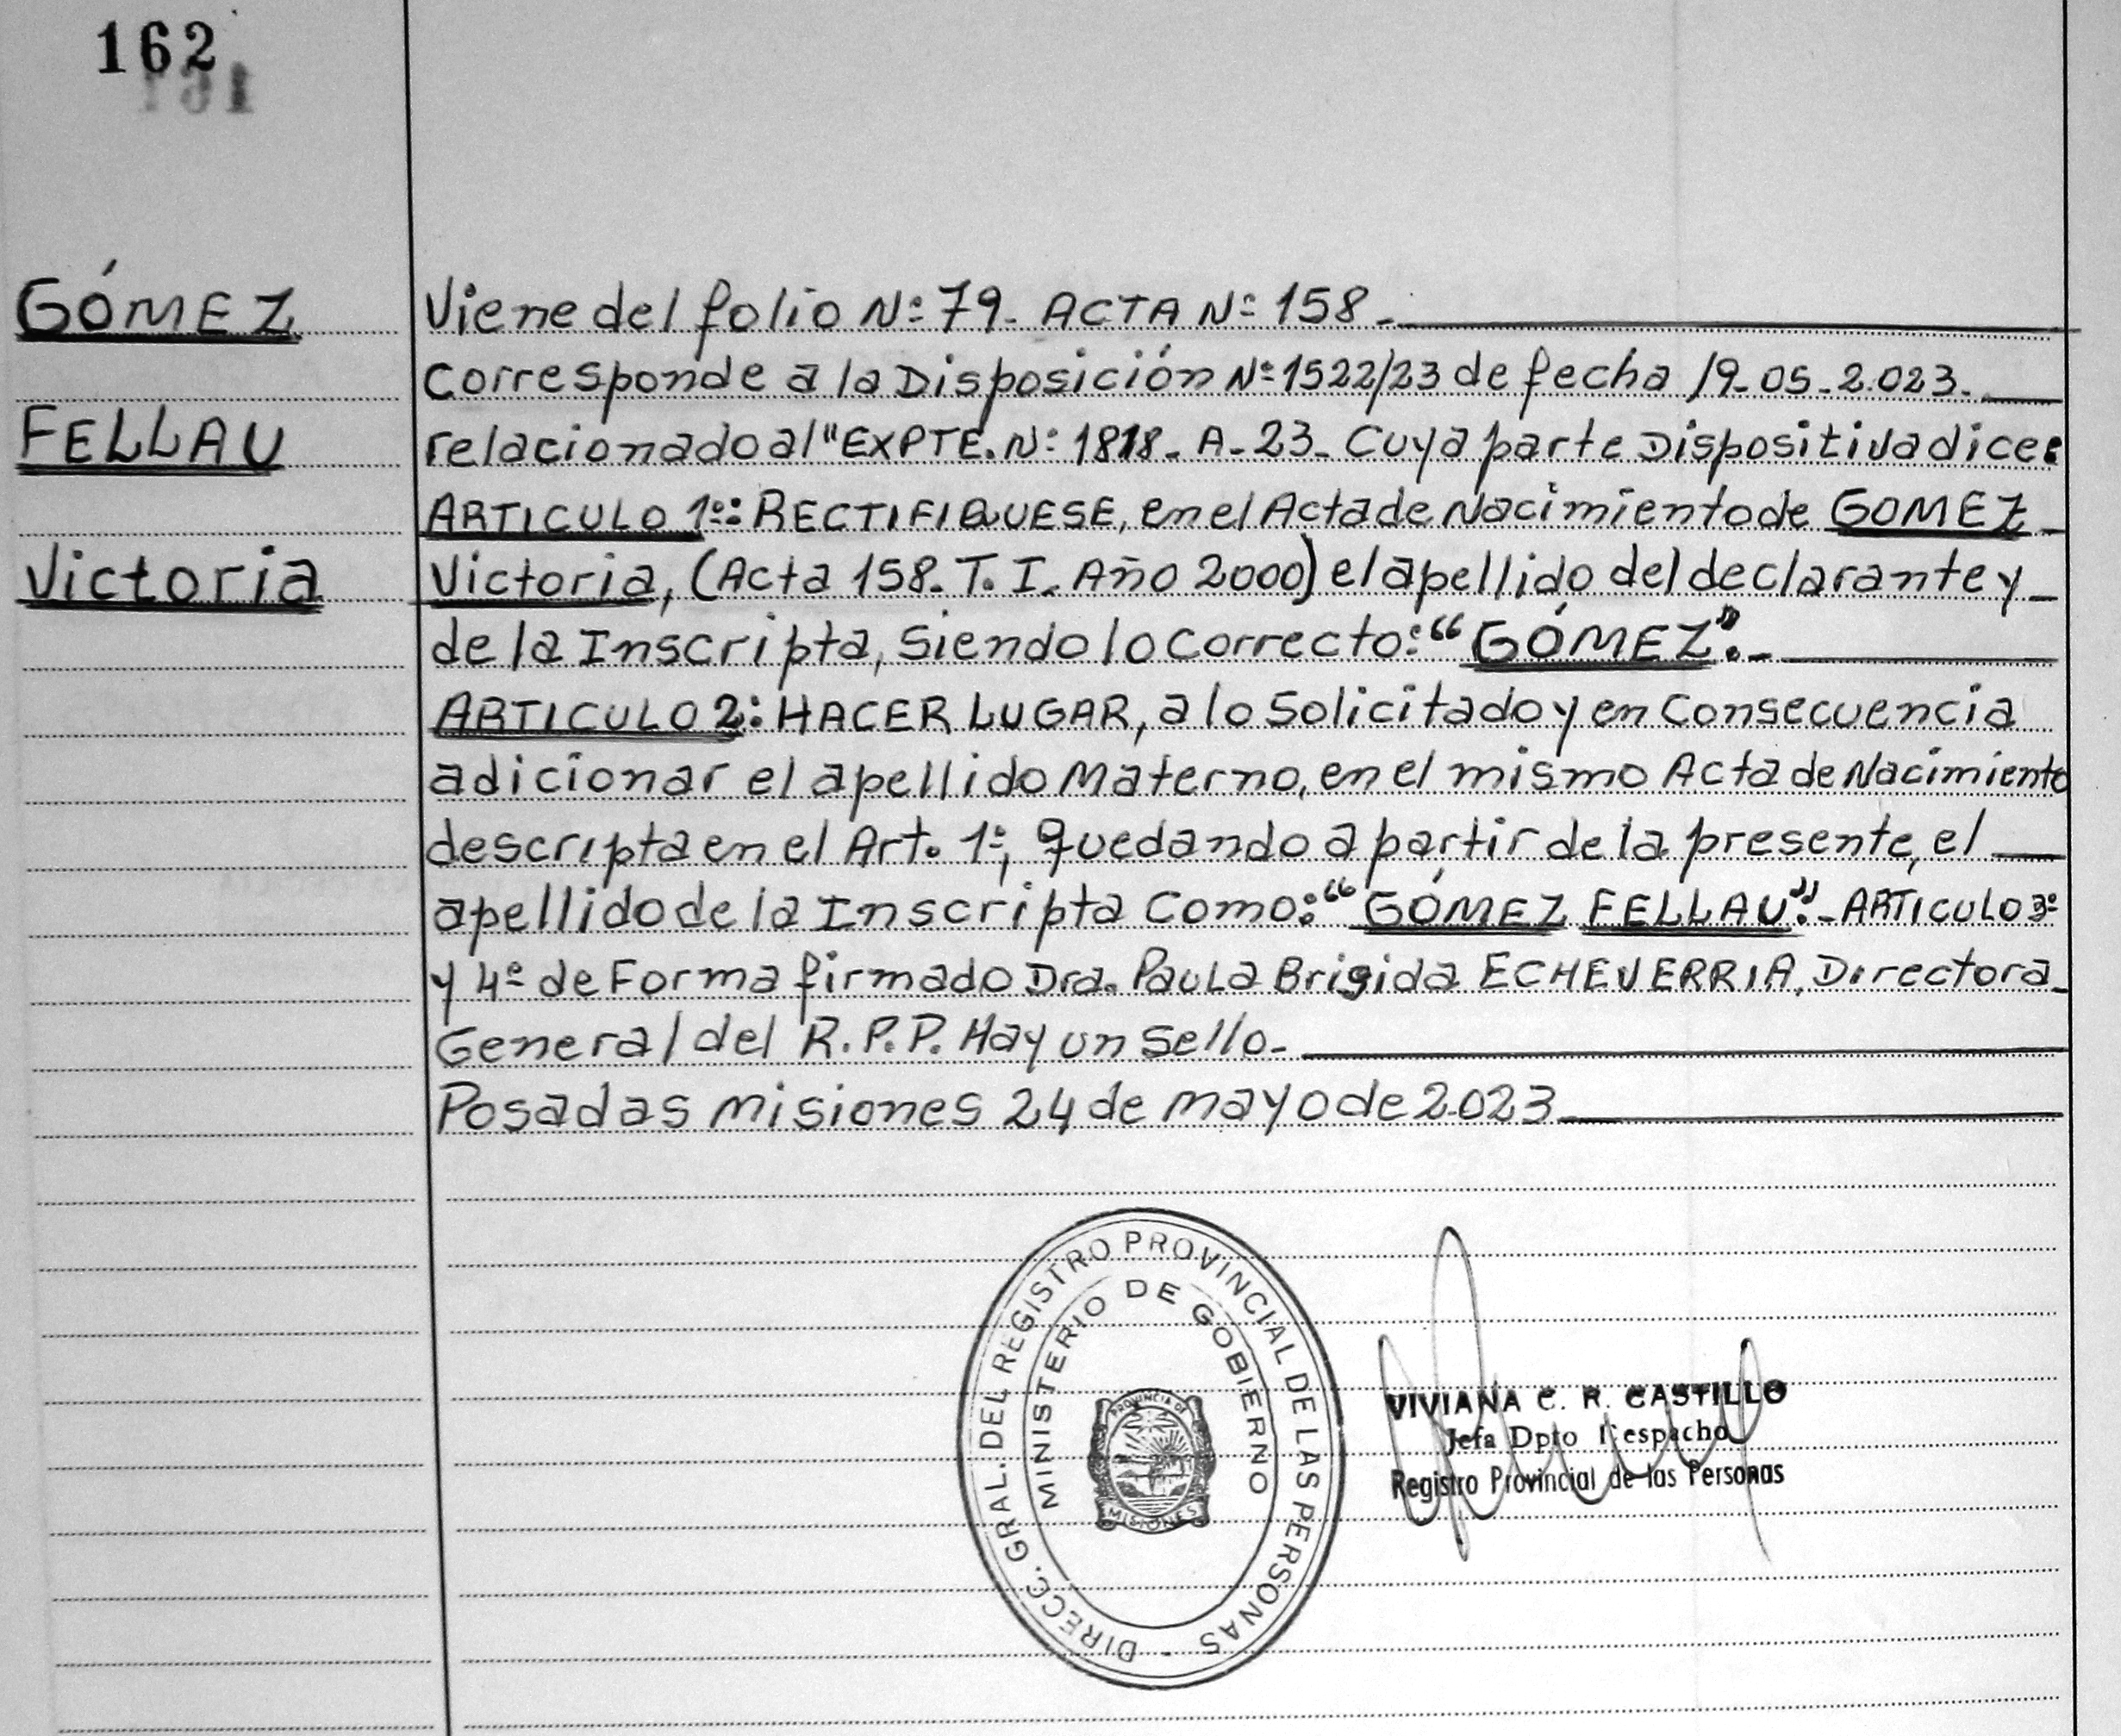 162
191
GÓMEZ
FELLAU
Victoria
Viene del folio Nº 79- ACTA Nº 158.-
Corresponde a la Disposición Nº 1522/23 de fecha 19-05-2.023.
relacionado al "EXPTE. Nº 1818- A-23- Cuya parte Dispositiva dice:
ARTICULO 1º: RECTIFIQUESE, en el Acta de Nacimiento de GOMEZ
Victoria, (Acta 158- T. I. Año 2000) el apellido del declarante y
de la Inscripta, Siendo lo Correcto: "GÓMEZ".-
ARTICULO 2: HACER LUGAR, a lo Solicitado y en Consecuencia
adicionar el apellido Materno, en el mismo Acta de Nacimiento
descripta en el Art. 1º, quedando a partir de la presente, el
apellido de la Inscripta Como: "GÓMEZ FELLAU".- ARTICULO 3º
y 4º de Forma firmado Dra. Paula Brigida ECHEVERRIA, Directora
General del R.P.P. Hay un Sello.-
Posadas Misiones 24 de mayo de 2.023
DIRECC. GRAL. DEL REGISTRO PROVINCIAL DE LAS PERSONAS -
MINISTERIO DE GOBIERNO
PROVINCIA DE
MISIONES
VIVIANA C. R. CASTILLO
Jefa Dpto Despacho
Registro Provincial de las Personas